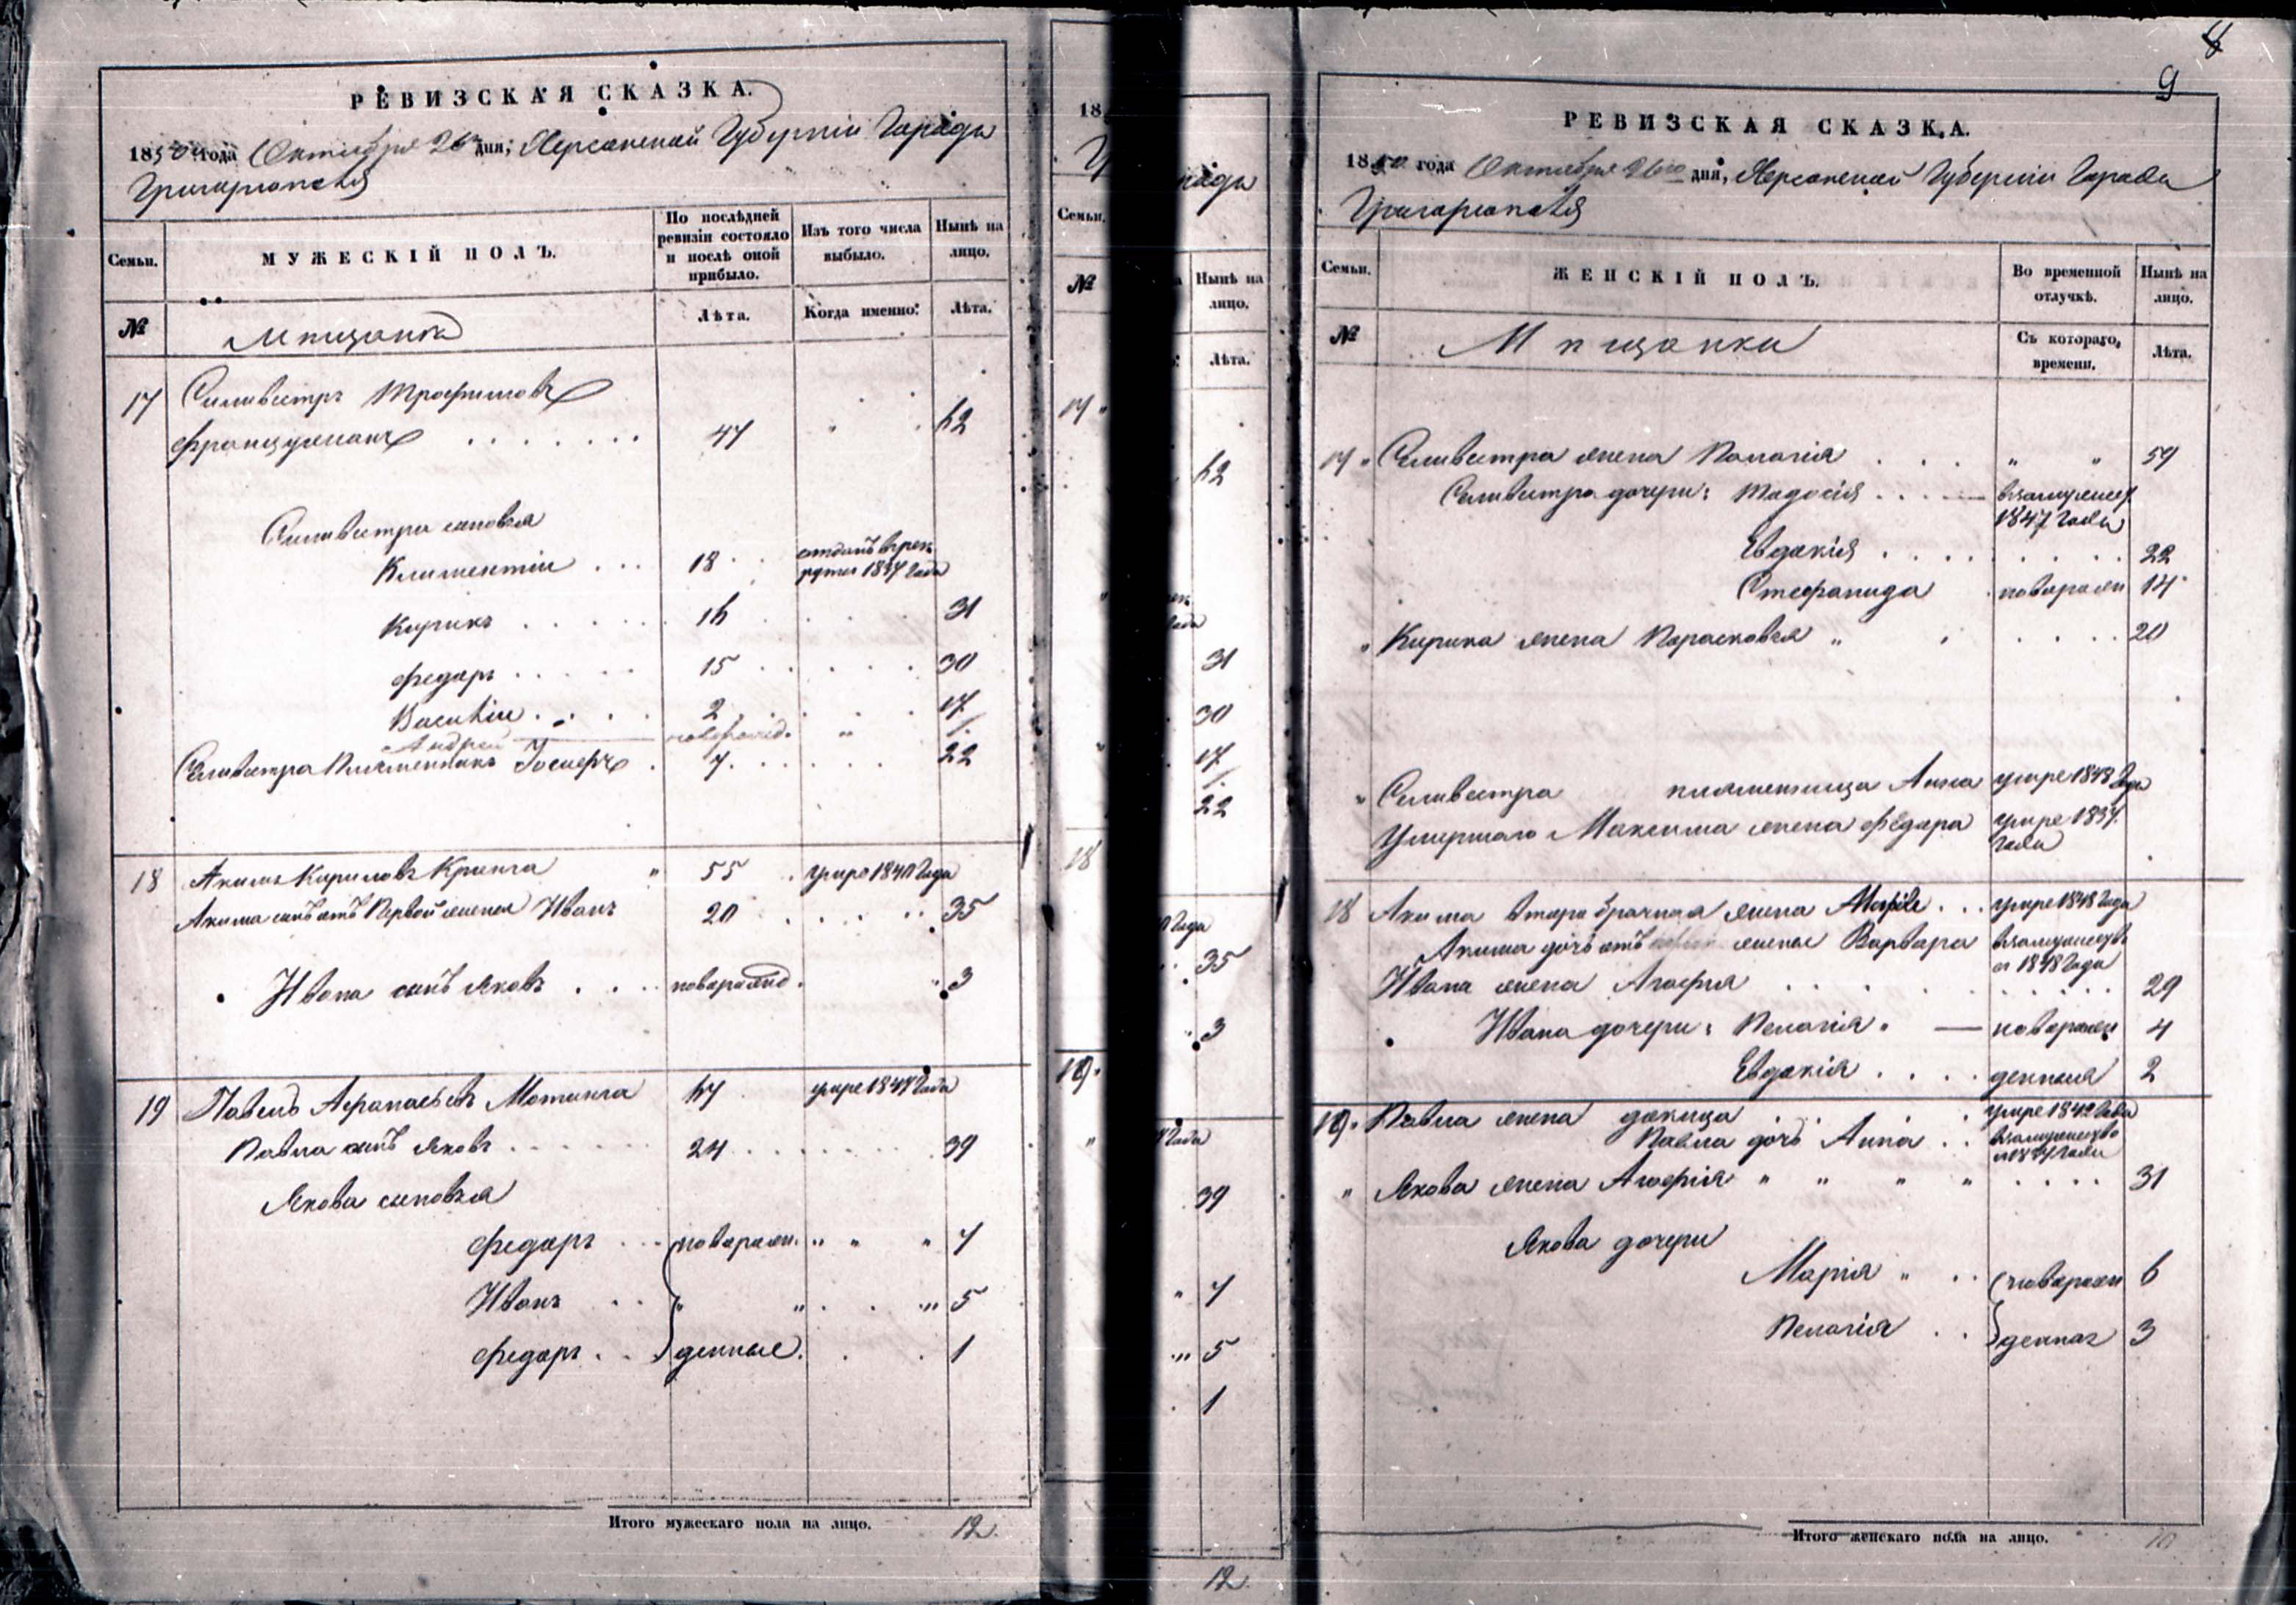 РЕВИЗСКАЯ СКАЗКА.
1850 года Октября 26 дня, Херсонской Губернии Города
Григориополя
Семьи.
МУЖЕСКІЙ ПОЛЪ.
По послѣдней ревизіи состояло и послѣ оной прибыло.
Изъ того числа выбыло.
Нынѣ на лицо.
№
Мещанка
Лѣта.
Когда именно:
Лѣта.
17 Силивестръ Трофимовъ
Французманъ 47 62
Силивестра сыновья
Климентии 18 отданъ врек
руты 1837 Года
Кирикъ 16 31
Федоръ 15 30
Василіи 2 17
Андрей новорожд. 1
Силивестра Племенникъ Іосифъ 7 22
18 Акимъ Кириловъ 55 умре 1840 Года
Акима сынъ отъ Первой жены Иванъ 20 35
Ивана сынъ Яковъ новорожд. 3
19 Павелъ Афанасьевъ 67 умре 1848 Года
Павла сынъ Яковъ 24 39
Якова сыновья
Федоръ новорожн. 7
Иванъ " " 5
Федоръ денные. 1
Итого мужескаго пола на лицо. 12.
18
Семьи.
№
17 "
18
19 "
рода
Нынѣ на лицо.
Лѣта.
62
31
30
17
1
22
Года
35
3
Года
39
7
5
1
12.
8
9
РЕВИЗСКАЯ СКАЗКА.
1850 года Октября 26го дня, Херсонской Губерніи Города
Григориополя
Семьи.
ЖЕНСКІЙ ПОЛЪ.
Во временной отлучкѣ.
Нынѣ на лицо.
№
Мещанки
Съ котораго, времени.
Лѣта.
17 " Силивестра жена Палагія " " 59
Силивестра дочери: Тадосія взамужест
1847 Года
Евдокія 22
Стефанида новорожн 14
" Кирика жена Парасковья " 20
" Силивестра племенница Анна умре 1843 Года
Умершаго Максима жена Федора умре 1837.
Года
18 Акима второбрачная жена умре 1848 Года
Акима дочь отъ первой жены Варвара взамужеств
1848 Года
Ивана жена Агафія 29
Ивана дочери: Пелагія " — новорожн 4
Евдокія денныя 2
19 " Павла жена умре 1842 Года
Павла дочь Анна взамужество
Года
" Якова жена Агафія " " " " 31
Якова дочери
Марія " новорожн 6
Пелагія денная 3
Итого женскаго пола на лицо. 10